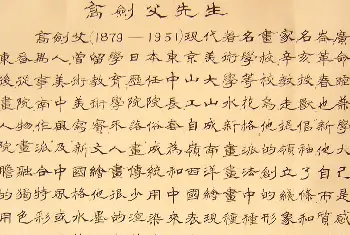 高劍父先生
高劍父(1879—1951)現代著名畫家名崙廣
東番禺人曾留學日本東京美術學校辛亥革命
後從事美術教育歷任中山大學等校教授春睡
畫院南中美術學院院長工山水花鳥走獸也兼
人物作風寫不落俗套自成新格他提倡新學
院畫派及新文人畫成為嶺南畫派的領袖他大
膽融合中國繪畫傳統和西洋畫法創立了自己
的獨特風格他很少用中國繪畫中的綫條而是
用色彩或水墨的渲染來表現種種形象和質感